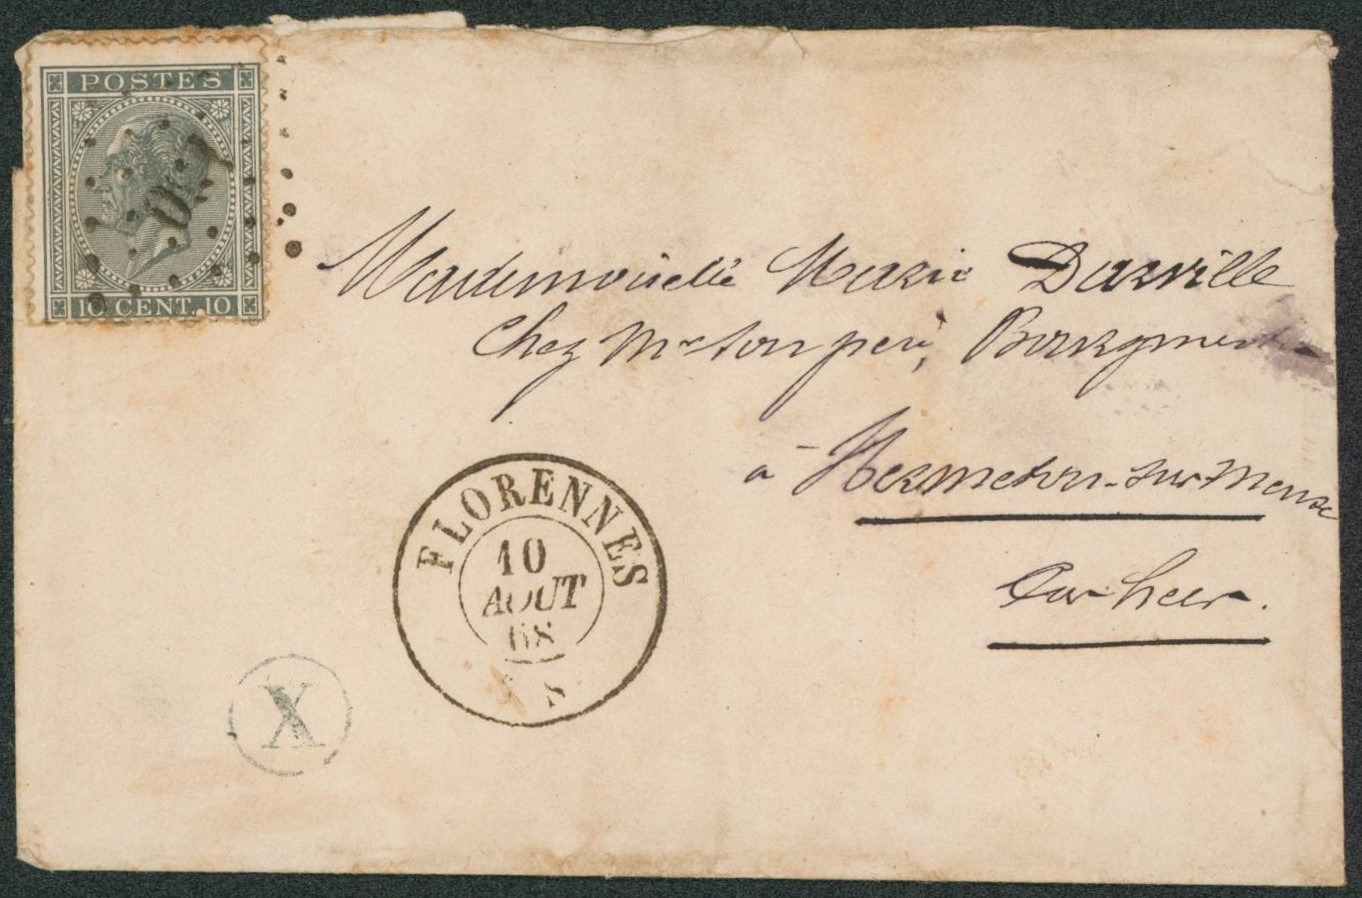 POSTES
10 CENT. 10
Mademoiselle Marie Darville
Chez Mr son père, Bourgmestre
à Hermeton-sur-Meuse
Par heer.
FLORENNES
10
AOUT
68
X